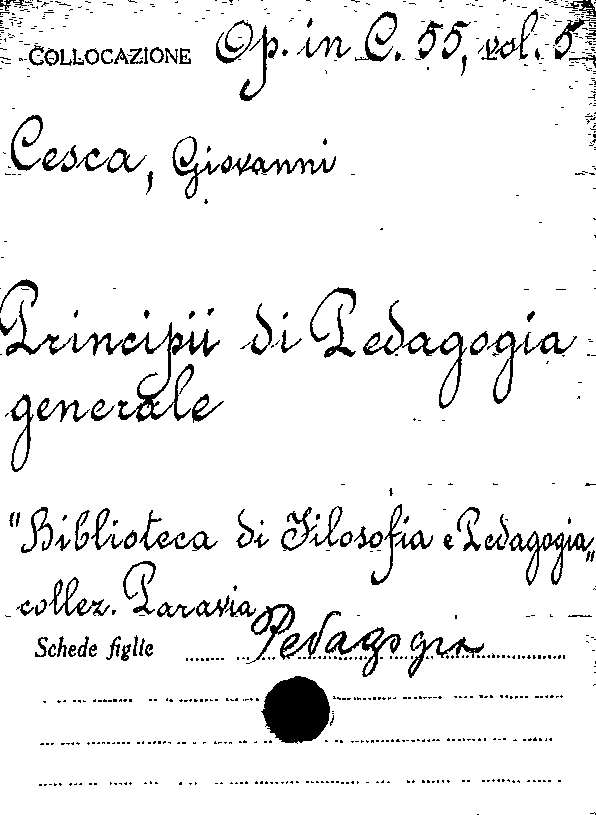 COLLOCAZIONE Op. in C. 55, vol. 5
Cesca, Giovanni
Principii di Pedagogia
generale
"Biblioteca di Filosofia e Pedagogia"
collez. Paravia
Schede figlie Pedagogia